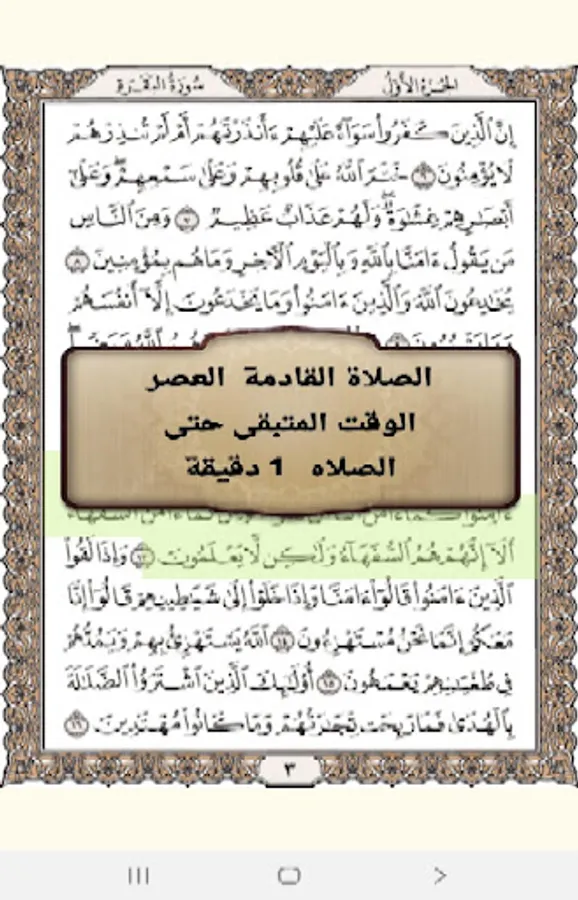 سورة البقرة
الجزء الأول
إِنَّ ٱلَّذِينَ كَفَرُوا۟ سَوَآءٌ عَلَيْهِمْ ءَأَنذَرْتَهُمْ أَمْ لَمْ تُنذِرْهُمْ
لَا يُؤْمِنُونَ ٦ خَتَمَ ٱللَّهُ عَلَىٰ قُلُوبِهِمْ وَعَلَىٰ سَمْعِهِمْ ۖ وَعَلَىٰٓ
أَبْصَـٰرِهِمْ غِشَـٰوَةٌ ۖ وَلَهُمْ عَذَابٌ عَظِيمٌ ٧ وَمِنَ ٱلنَّاسِ
مَن يَقُولُ ءَامَنَّا بِٱللَّهِ وَبِٱلْيَوْمِ ٱلْـَٔاخِرِ وَمَا هُم بِمُؤْمِنِينَ ٨
يُخَـٰدِعُونَ ٱللَّهَ وَٱلَّذِينَ ءَامَنُوا۟ وَمَا يَخْدَعُونَ إِلَّآ أَنفُسَهُمْ
الصلاة القادمة العصر
الوقت المتبقى حتى
الصلاه 1 دقيقة
أَلَآ إِنَّهُمْ هُمُ ٱلسُّفَهَآءُ وَلَـٰكِن لَّا يَعْلَمُونَ ١٣ وَإِذَا لَقُوا۟
ٱلَّذِينَ ءَامَنُوا۟ قَالُوٓا۟ ءَامَنَّا وَإِذَا خَلَوْا۟ إِلَىٰ شَيَـٰطِينِهِمْ قَالُوٓا۟ إِنَّا
مَعَكُمْ إِنَّمَا نَحْنُ مُسْتَهْزِءُونَ ١٤ ٱللَّهُ يَسْتَهْزِئُ بِهِمْ وَيَمُدُّهُمْ
فِى طُغْيَـٰنِهِمْ يَعْمَهُونَ ١٥ أُو۟لَـٰٓئِكَ ٱلَّذِينَ ٱشْتَرَوُا۟ ٱلضَّلَـٰلَةَ
بِٱلْهُدَىٰ فَمَا رَبِحَت تِّجَـٰرَتُهُمْ وَمَا كَانُوا۟ مُهْتَدِينَ ١٦
٣